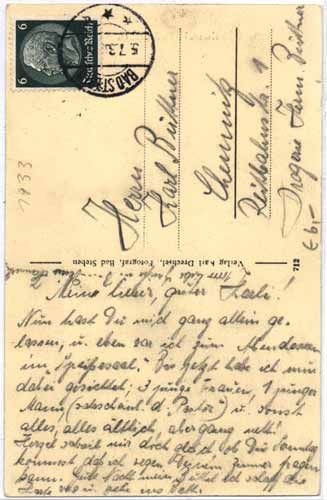 6
Deutsches Reich
6
BAD STEBEN
5.7.3
1933
Herrn
Karl Büttner
Chemnitz
Reitbahnstr. 1
Drogerie Herm. Büttner
€ 6,-
Verlag Karl Drechsel, Fotograf, Bad Steben
712
Meine lieber, guter Karli!
Nun hast Du mich ganz allein ge-
lassen, u. eben war ich zum Abendessen
im "Speisesaal". Bis jetzt habe ich nun
dabei gesichtet: 3 junge Frauen, 1 junger
Mann (wahrscheinl. d. Pastor) u. sonst
alles, alles ältlich, aber ganz nett!
schreib mir doch doch ob Du Sonntag
kommst, daß ich wegen Deinem Zimmer fragen
kann. Gute Nacht mein